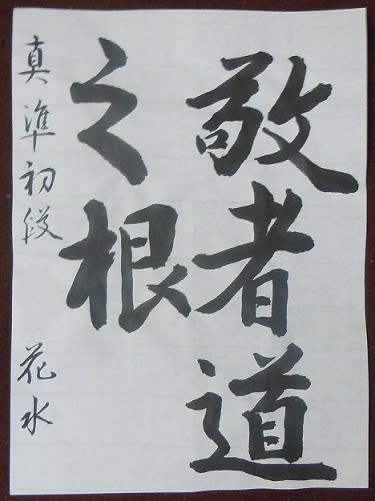 敬者道
之根
真 準初段 花水